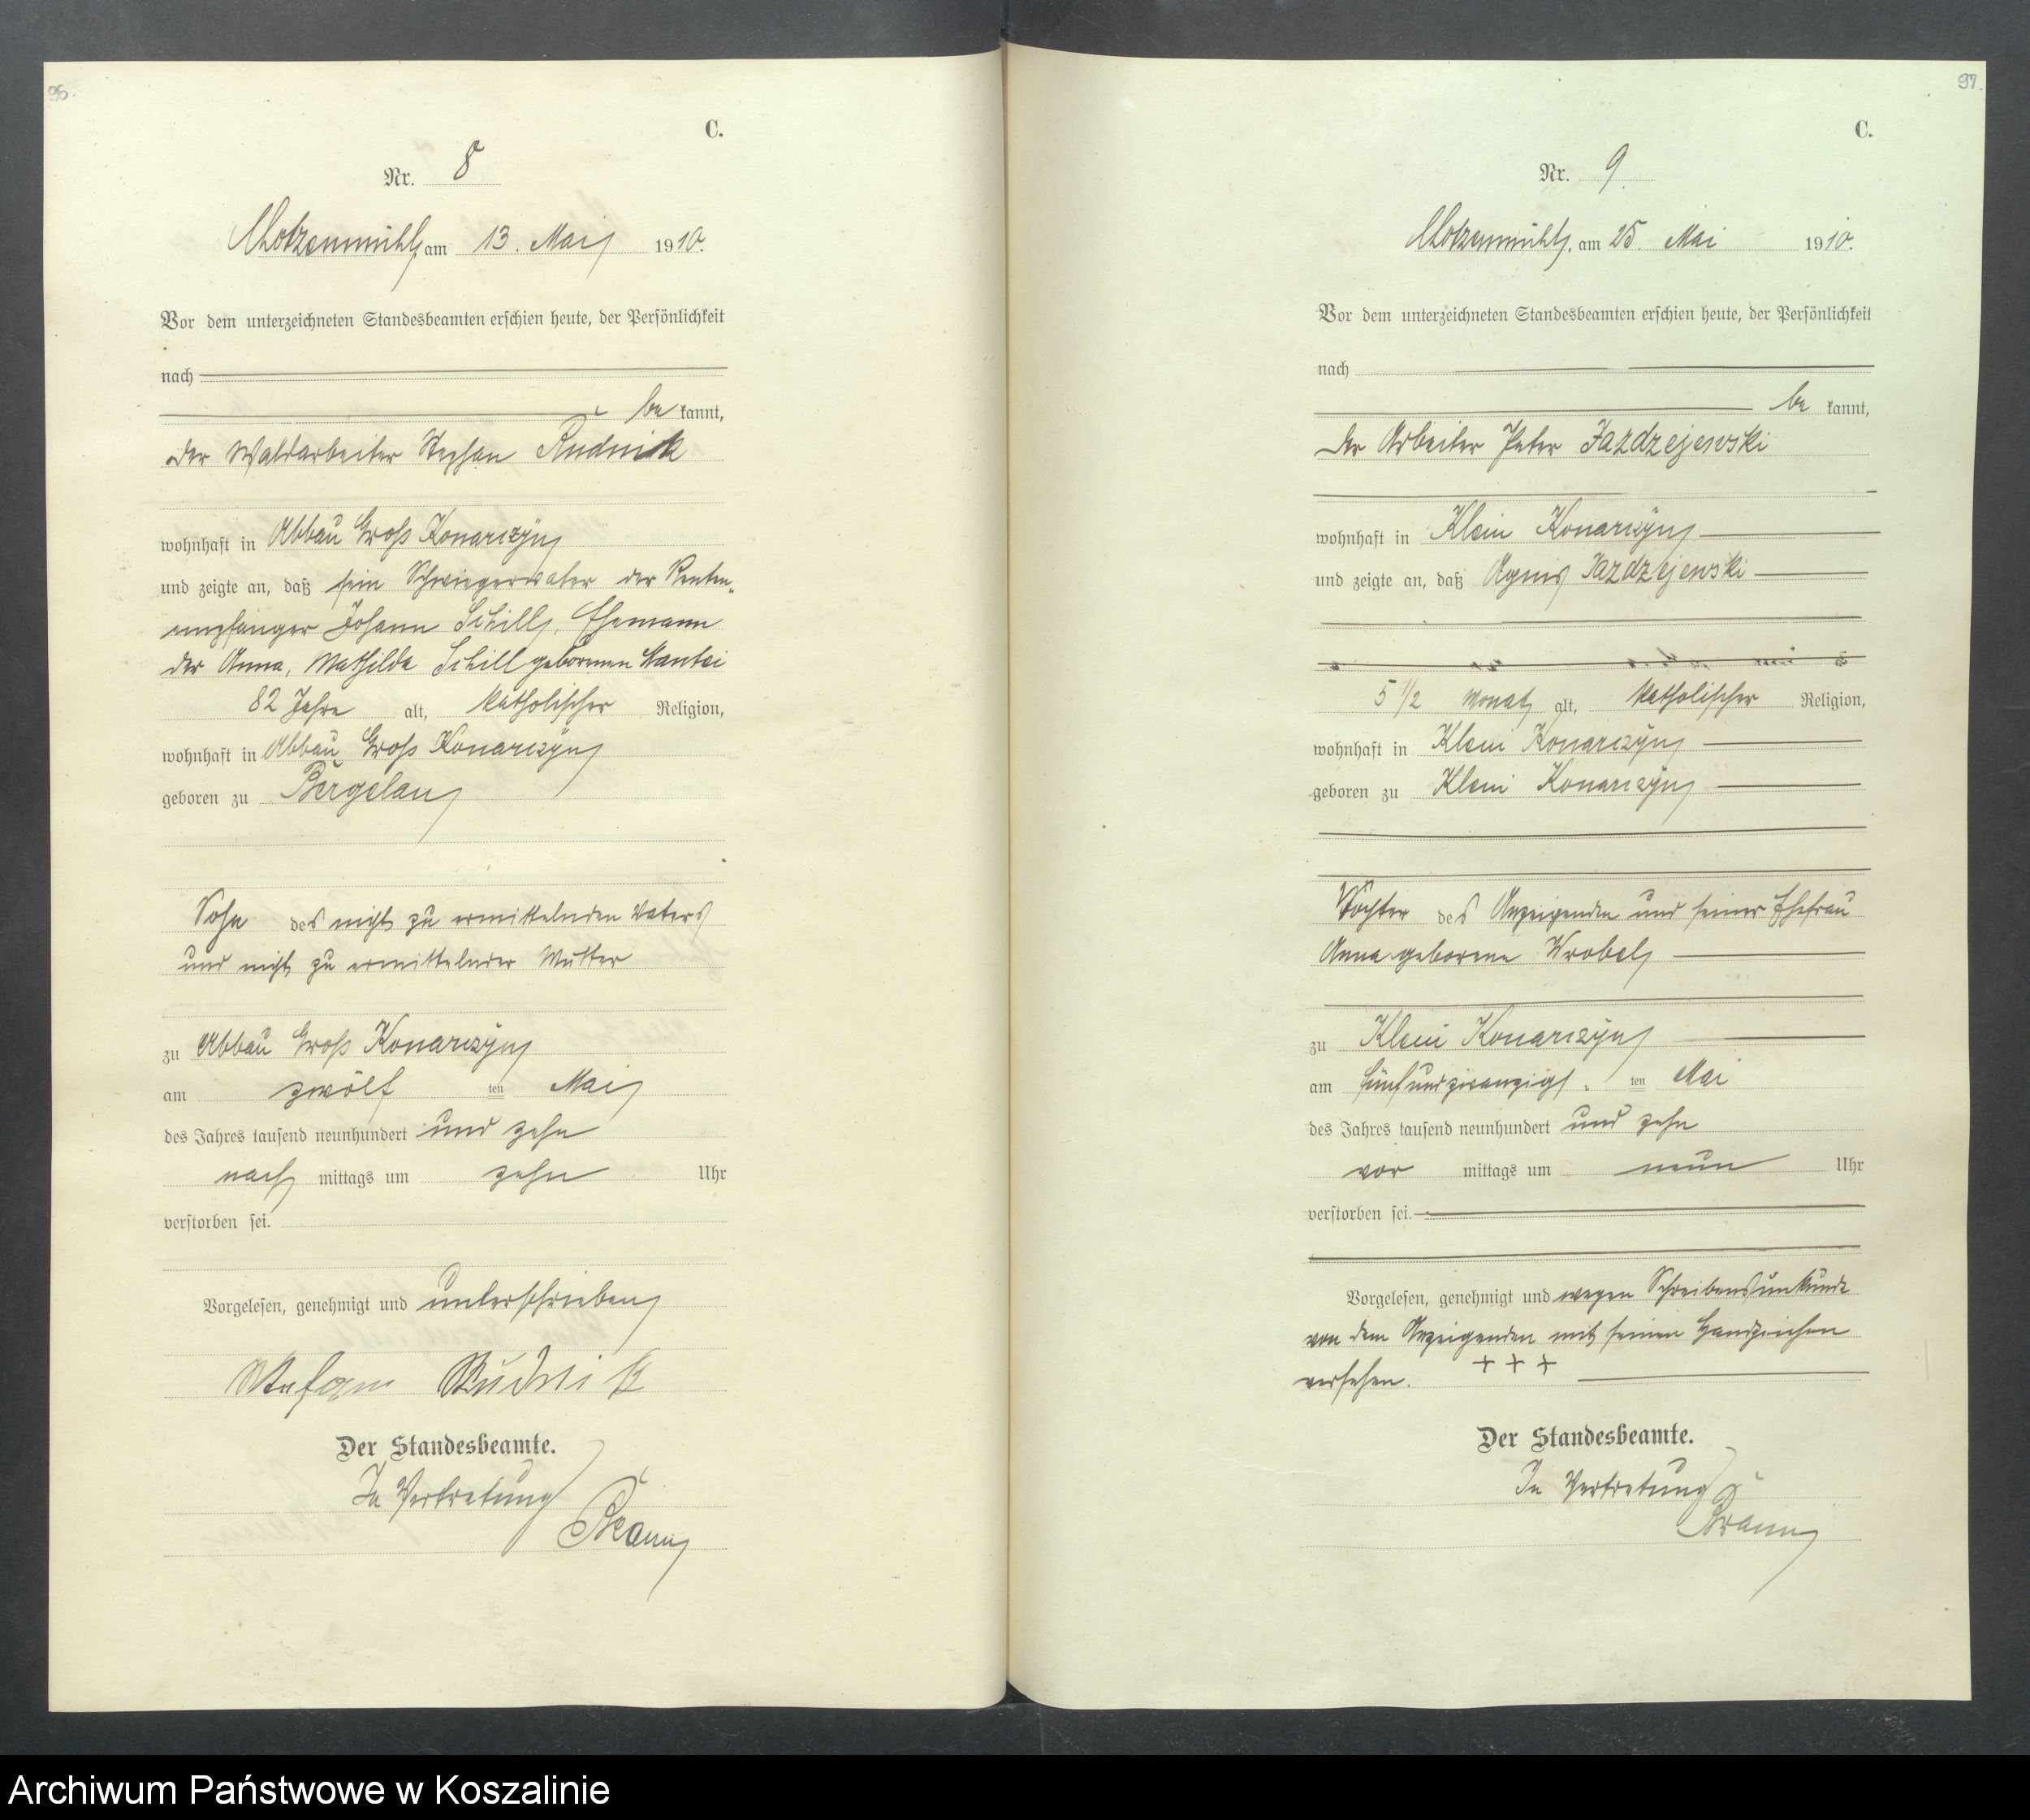 96.
C.
Nr. 8
Chotzenmühl, am 13. Mai 1910.
Vor dem unterzeichneten Standesbeamten erschien heute, der Persönlichkeit
nach
be kannt,
der Waldarbeiter Stephan Rudnik
wohnhaft in Abbau Groß Konarczyn
und zeigte an, daß sein Schwiegervater der Renten-
empfänger Johann Schill, Ehemann
der Anna, Mathilde Schill geborenen Mantei
82 Jahre alt, katholischer Religion,
wohnhaft in Abbau Groß Konarczyn
geboren zu Bergelau
Sohn des nicht zu ermittelnden Vaters
und nicht zu ermittelnder Mutter
zu Abbau Groß Konarczyn
am zwölf ten Mai
des Jahres tausend neunhundert und zehn
nach mittags um zehn Uhr
verstorben sei.
Vorgelesen, genehmigt und unterschrieben
Stefan Rudnik
Der Standesbeamte.
In Vertretung
Braun
97.
C.
Nr. 9.
Chotzenmühl, am 25. Mai 1910.
Vor dem unterzeichneten Standesbeamten erschien heute, der Persönlichkeit
nach
be kannt,
der Arbeiter Peter Jazdzejewski
wohnhaft in Klein Konarczyn
und zeigte an, daß Agnes Jazdzejewski
5 1/2 Monat alt, katholischer Religion,
wohnhaft in Klein Konarczyn
geboren zu Klein Konarczyn
Tochter des Anzeigenden und seiner Ehefrau
Anna geborene Wrobel
zu Klein Konarczyn
am fünfundzwanzigs- ten Mai
des Jahres tausend neunhundert und zehn
vor mittags um neun Uhr
verstorben sei.
Vorgelesen, genehmigt und wegen Schreibensunkunde
von dem Anzeigenden mit seinen Handzeichen
versehen. + + +
Der Standesbeamte.
In Vertretung
Braun
Archiwum Państwowe w Koszalinie